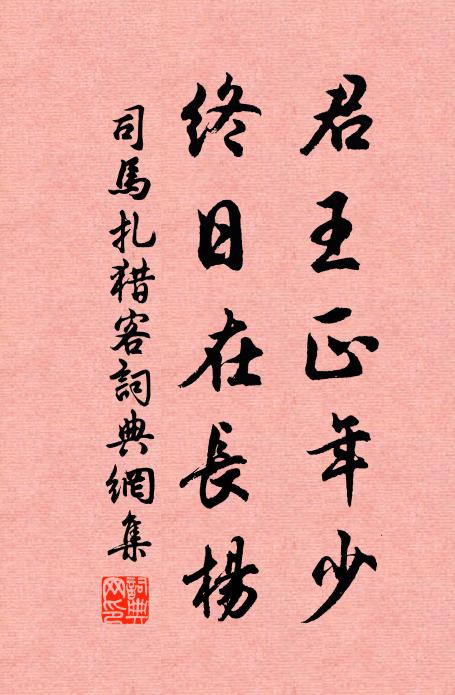 君王正年少
終日在長楊
司馬扎猎客詞典網集
詞典
网印